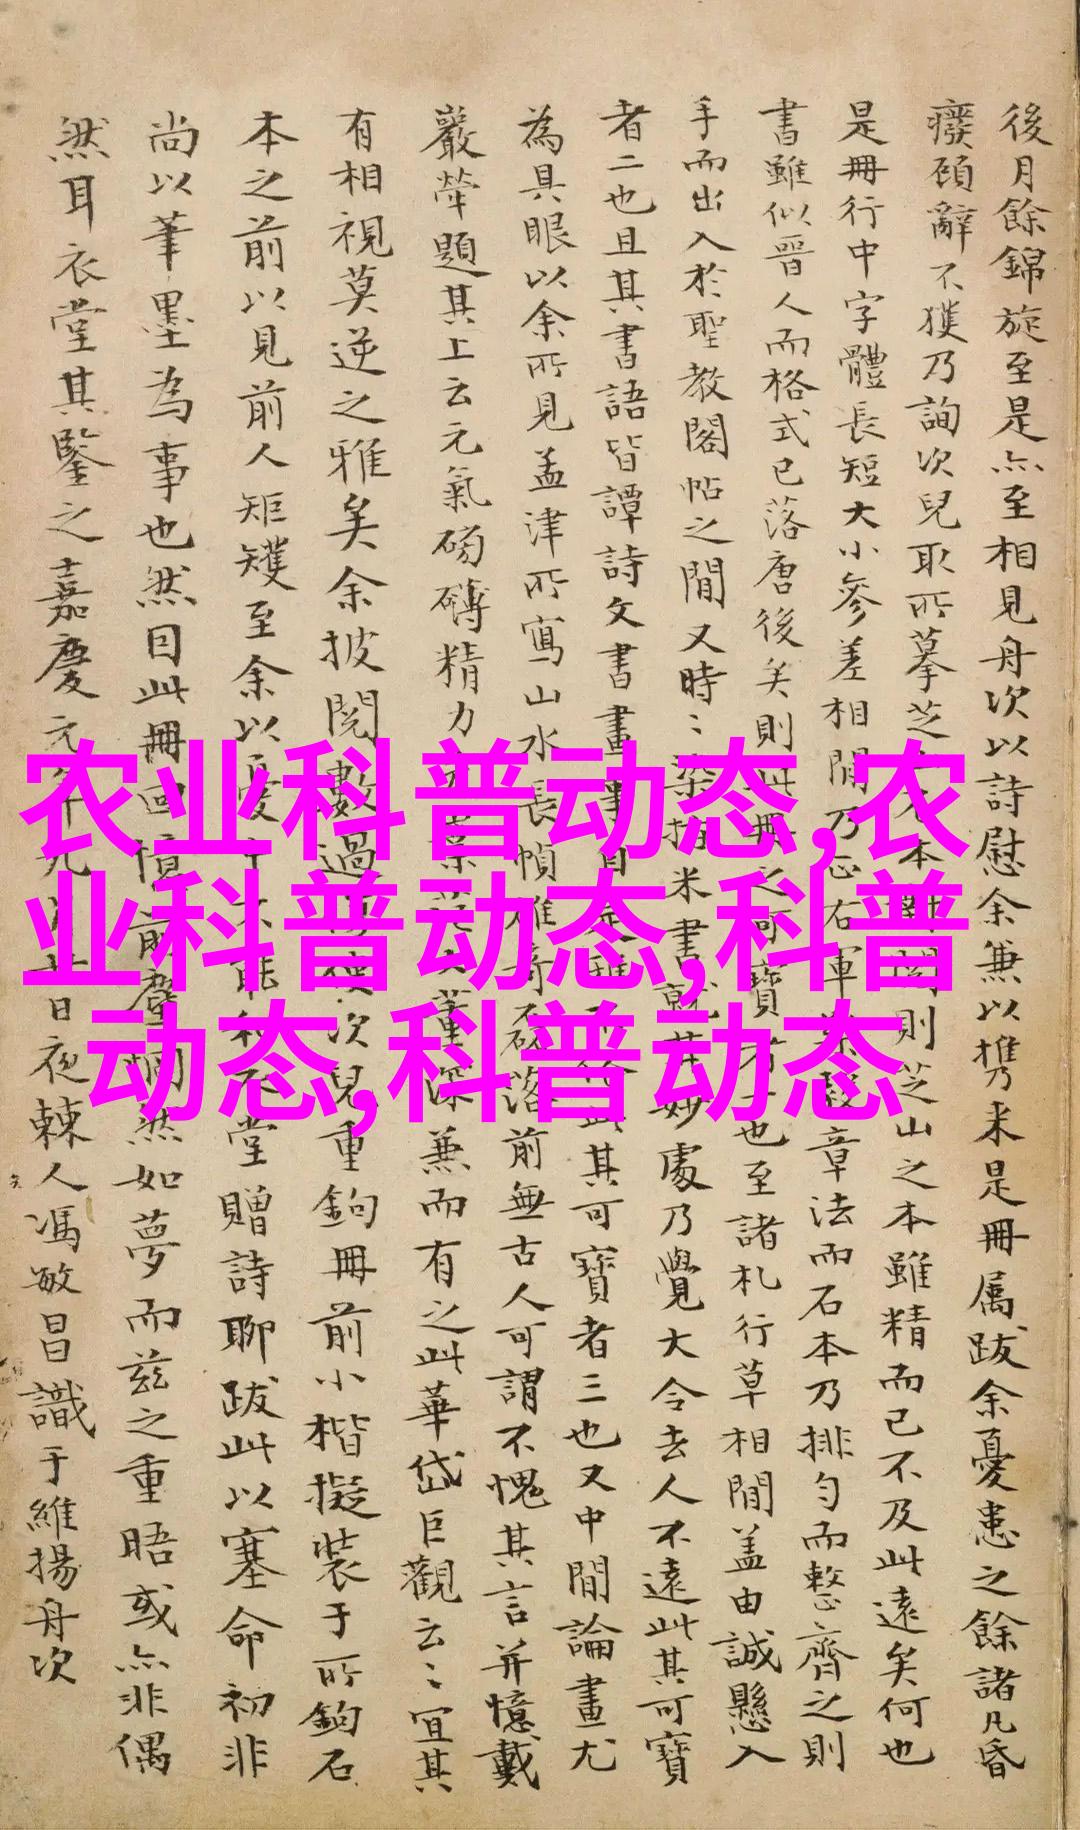 後月餘錦旋至是亦至相見舟次以詩慰余兼以携来是冊属跋余憂患之餘諸凡昏
癈頋辭不獲乃詢次兒取所摹芝則芝山之本雖精而已不及此遠矣何也
是冊行中字體長短大小參差相間乃心右軍章法而石本乃排勻而整齊之則
書雖似晋人而格式已落唐後矣則此冊之可寶者一也至諸札行草相間盖由誠懸入
手而出入於聖教閣帖之間又時〻米書妙處乃覺大令去人不遠此其可寶
者二也且其書語皆譚詩文書畫事其可寶者三也又中間論畫尤
為具眼以余所見孟津所寫山水長幀雄落前無古人可謂不愧其言并憶戴
巖犖題其上云元氣磅礴精力深兼而有之此華岱巨觀云〻宜其
有相視莫逆之雅矣余披閱數過次兒重鉤冊前小楷擬裝于所鉤石
本之前以見前人矩矱至余以堂贈詩聊跋此以塞命初非
尚以筆墨為事也然因此冊回憶前塵惘然如夢而兹之重晤或亦非偶
然耳衣堂其鑒之嘉慶元年九日夜棘人馮敏昌識于維揚舟次
农业科普动态,农
业科普动态,科普
动态,科普动态